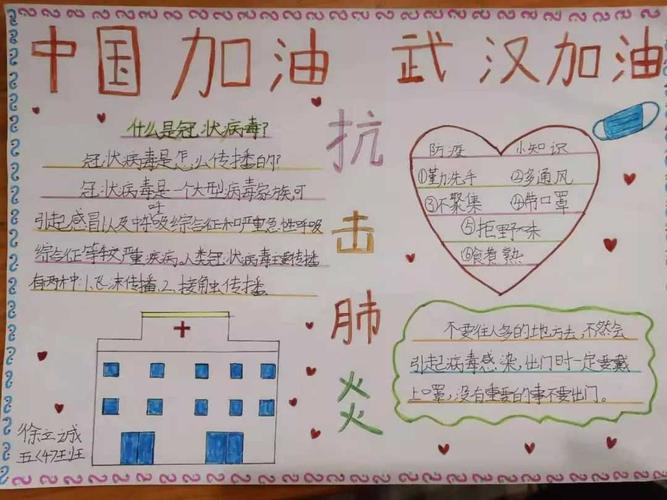 中国加油 武汉加油
什么是冠状病毒?
冠状病毒是怎么传播的?
冠状病毒是一个大型病毒家族,可
引起感冒以及中呼吸综合征和严重急性呼吸
综合征等较严重疾病,人类冠状病毒主要传播
有两种:1.飞沫传播,2.接触传播。
抗击肺炎
防疫 小知识
①勤洗手 ②多通风
③不聚集 ④带口罩
⑤拒野味
⑥食煮熟
不要往人多的地方去,不然会
引起病毒感染,出门时一定要戴
上口罩,没有重要的事不要出门。
徐立诚
五〈4〉班